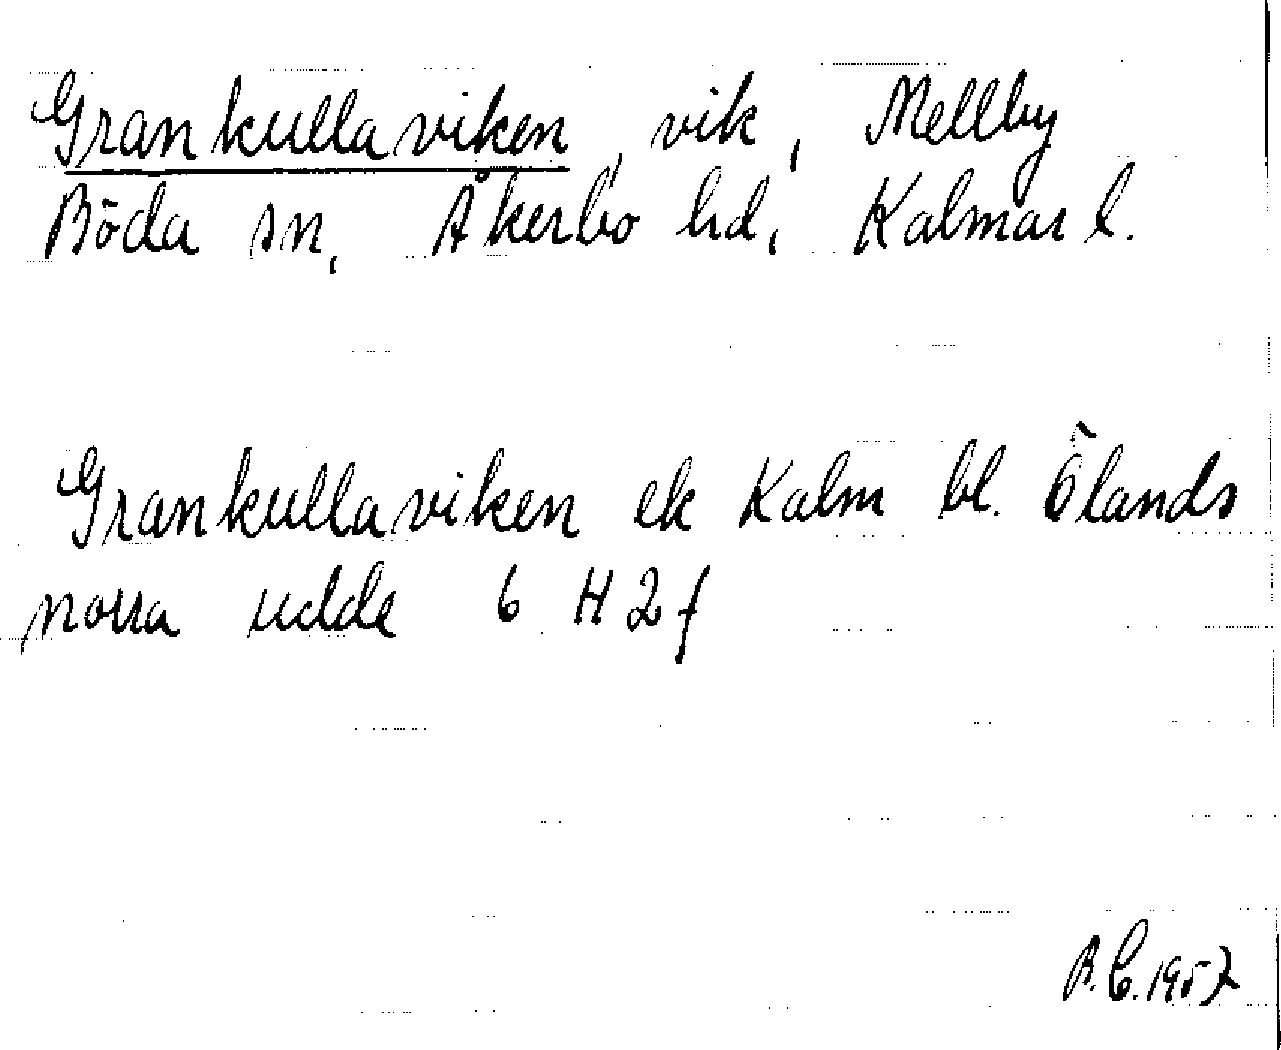 Grankullaviken, vik, Mellby
Böda sn, Åkerbo hd, Kalmar l.
Grankullaviken ek Kalm bl. Ölands
norra udde 6 H 2 f
B.C. 1957